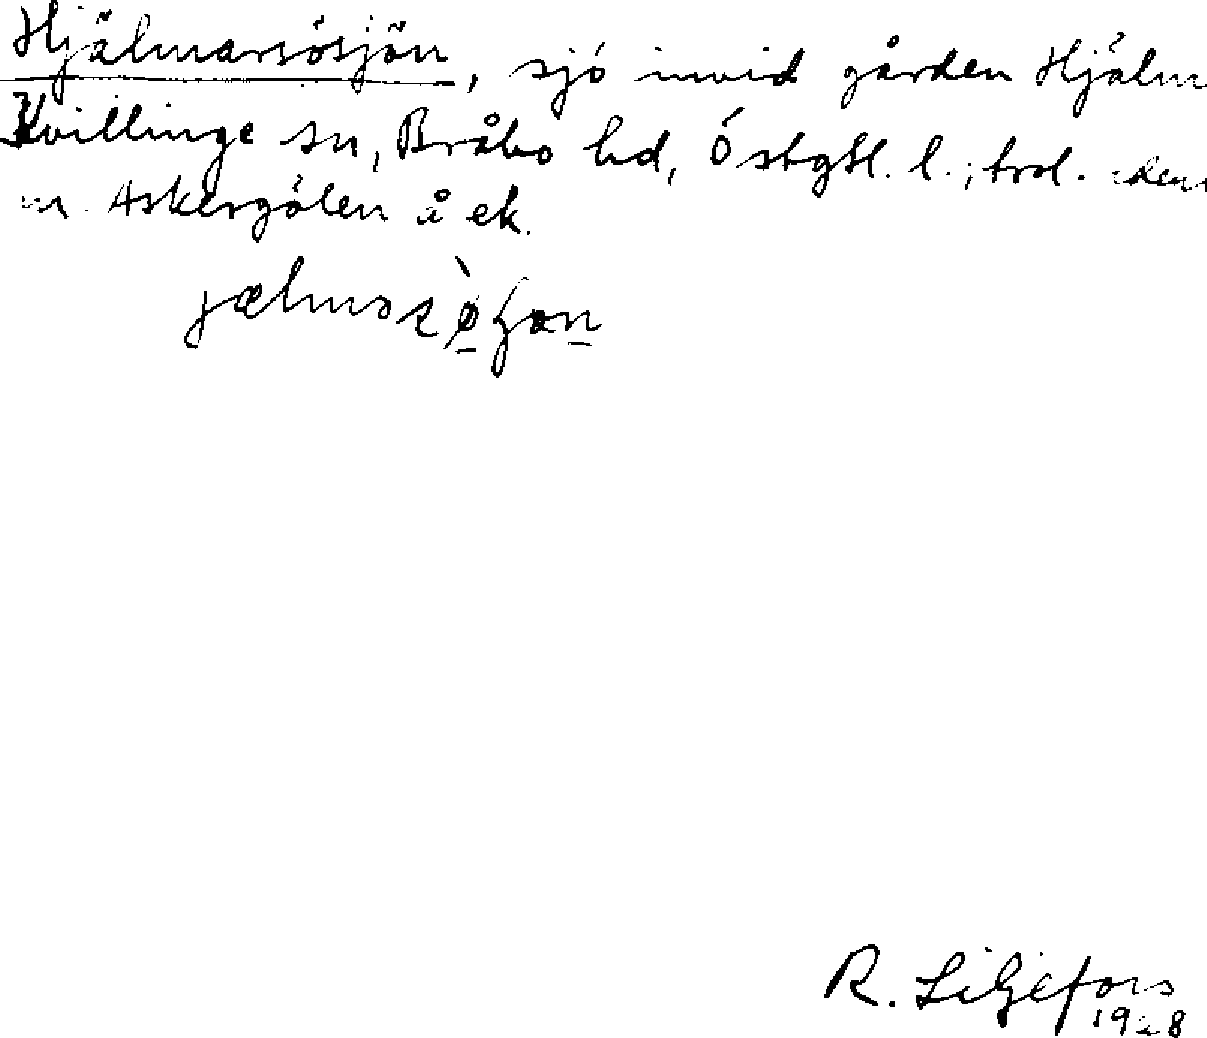 Hjälmarsösjön, sjö invid gården Hjälm
Kvillinge sn, Bråbo hd, Östgtl. l.; trol. iden
m. Askergölen å ek.
R. Liljefors
1928